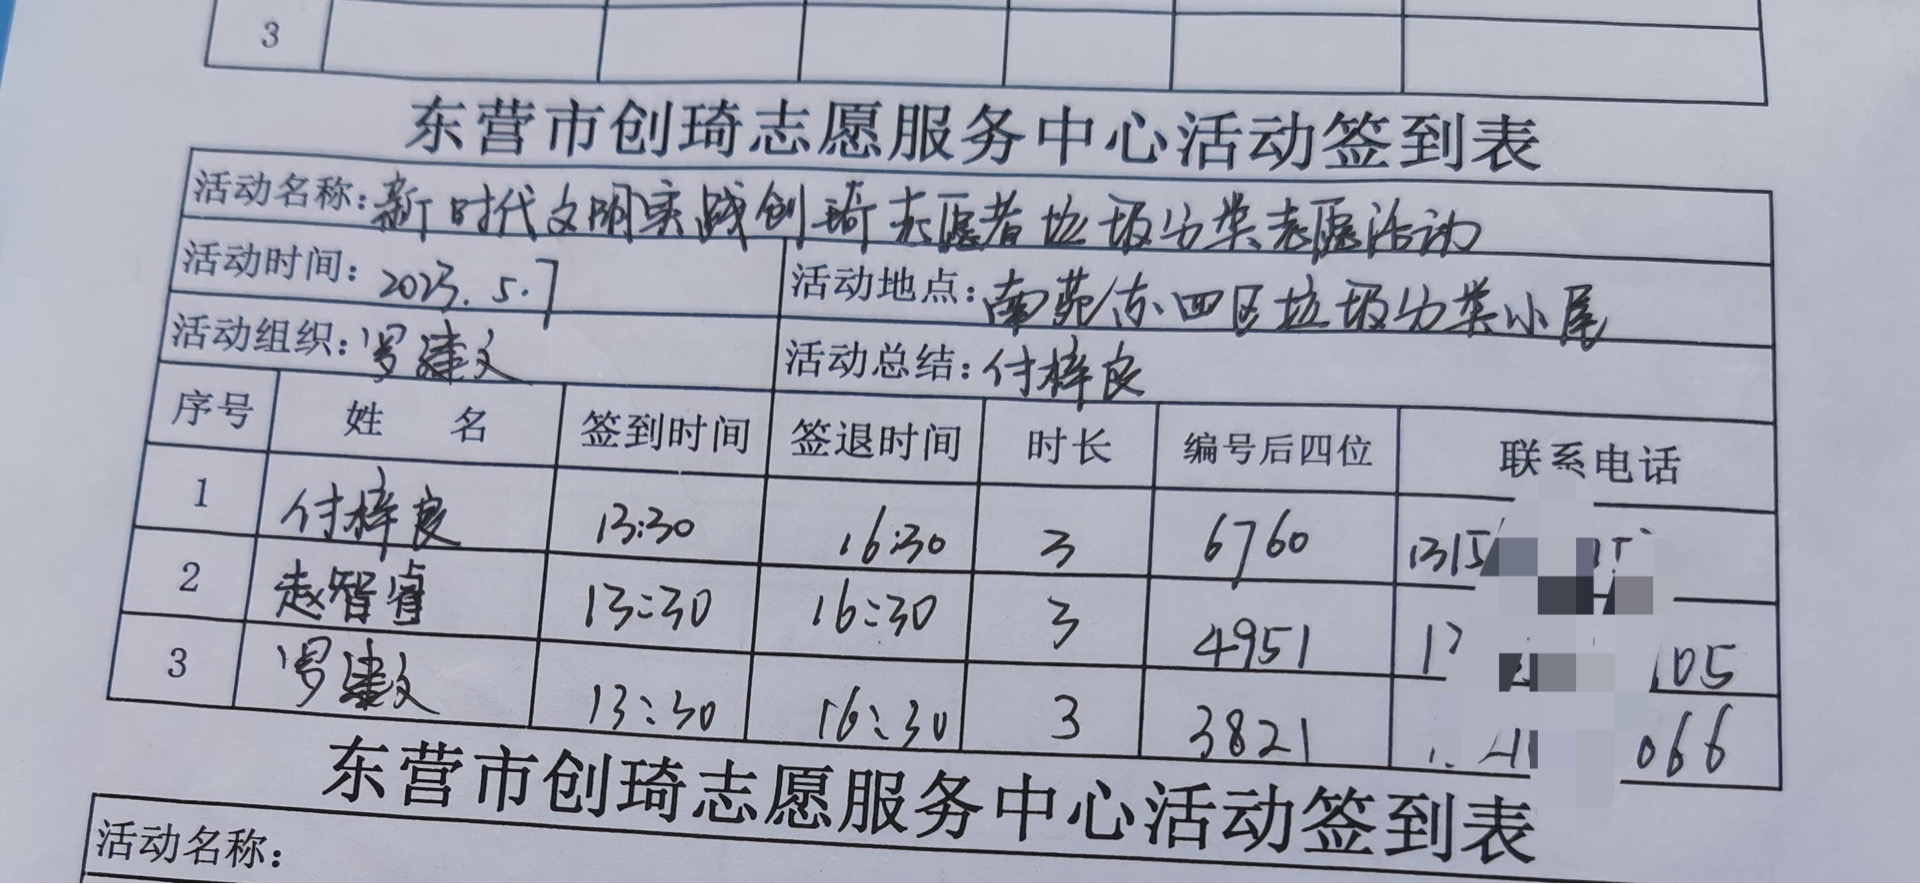 3
东营市创琦志愿服务中心活动签到表
活动名称:新时代文明实践创琦志愿者垃圾分类志愿活动
活动时间:2023.5.7 活动地点:南苑东四区垃圾分类小屋
活动组织:罗建文 活动总结:付梓良
序号 姓 名 签到时间 签退时间 时长 编号后四位 联系电话
1 付梓良 13:30 16:30 3 6760 1315
2 赵智睿 13:30 16:30 3 4951 105
3 罗建文 13:30 16:30 3 3821 066
东营市创琦志愿服务中心活动签到表
活动名称: